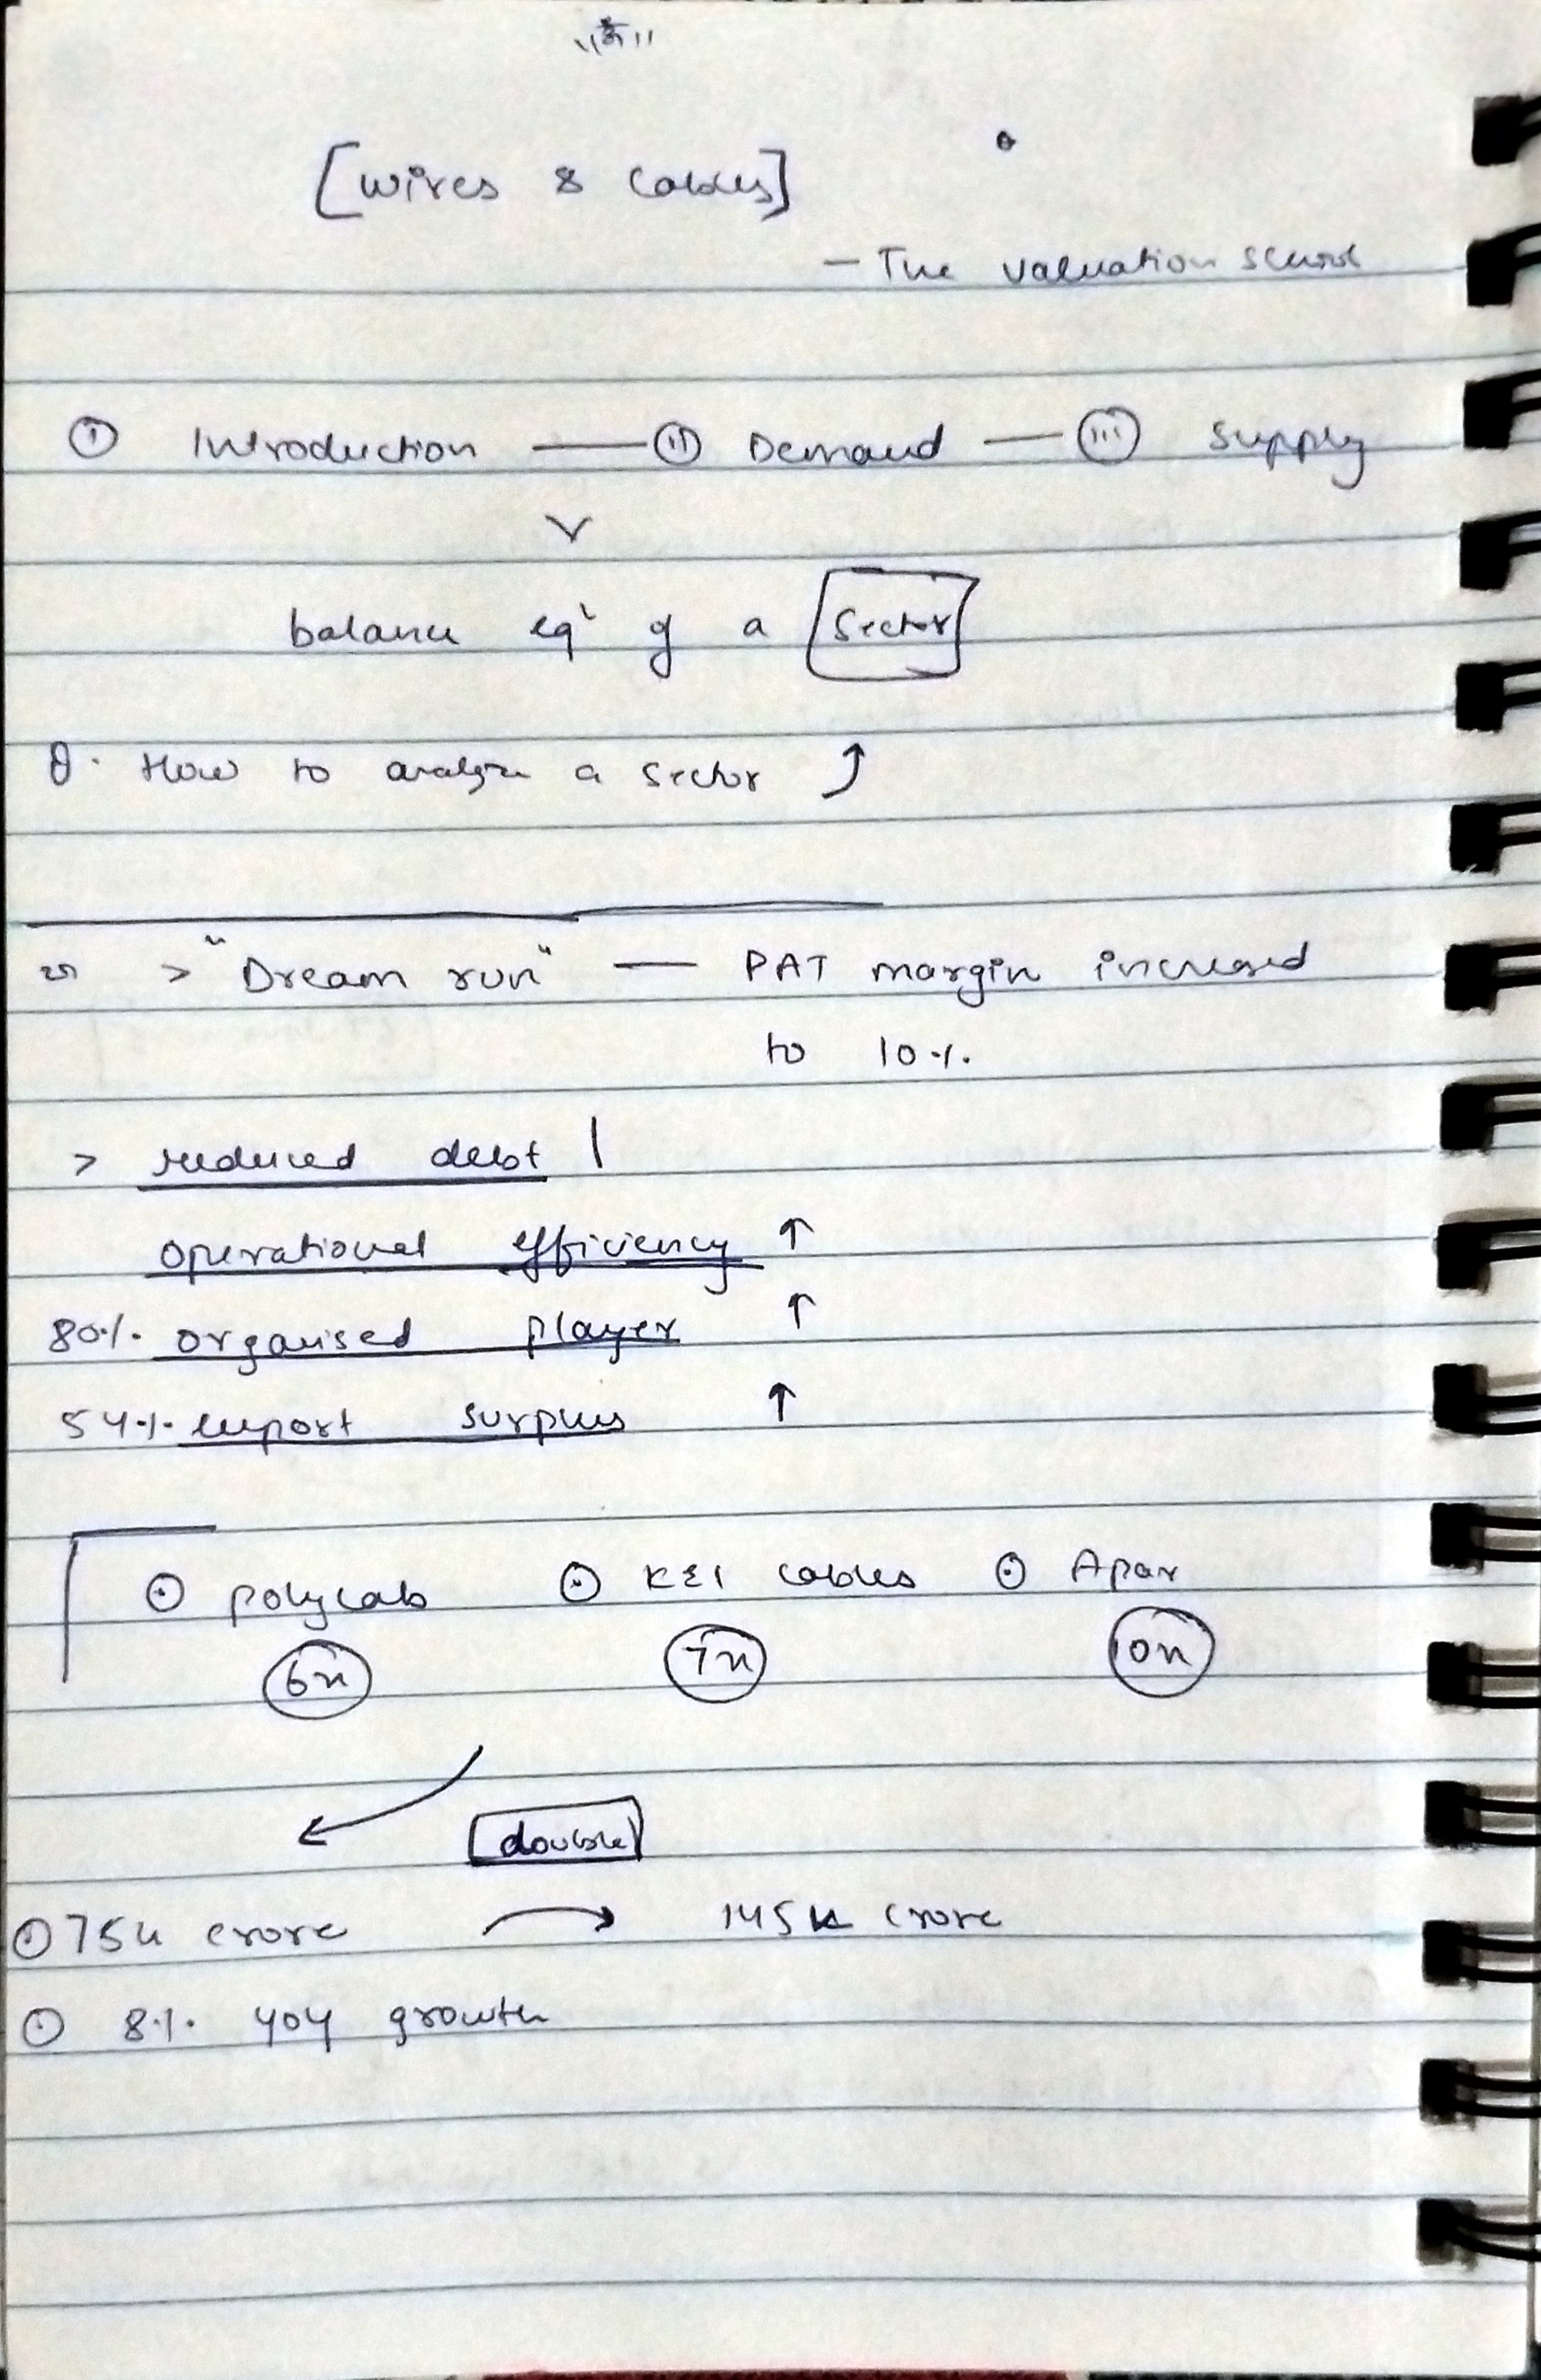 "ॐ"
[Wires & Cables]
— The valuation school
① Introduction — ⑪ Demand — ⑪⑪ Supply
balance eqⁿ of a Sector
Q. How to analyze a Sector ⤴
> "Dream run" — PAT margin increased
to 10%.
> reduced debt |
operational efficiency ↑
80%. organised player ↑
54%. export surplus ↑
⊙ polycab ⊙ KEI cables ⊙ Apar
6x 7x 10x
double
⊙ 75K crore → 145K crore
⊙ 8%. YoY growth